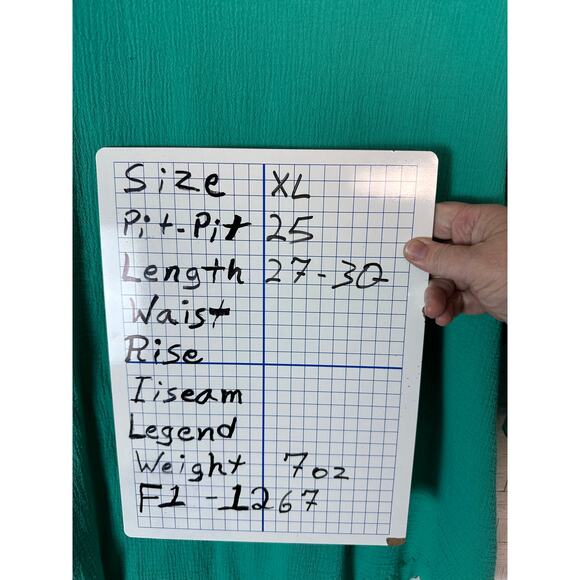 Size XL
Pit-Pit 25
Length 27-30
Waist
Rise
Iiseam
Legend
Weight 7oz
F1 -1267